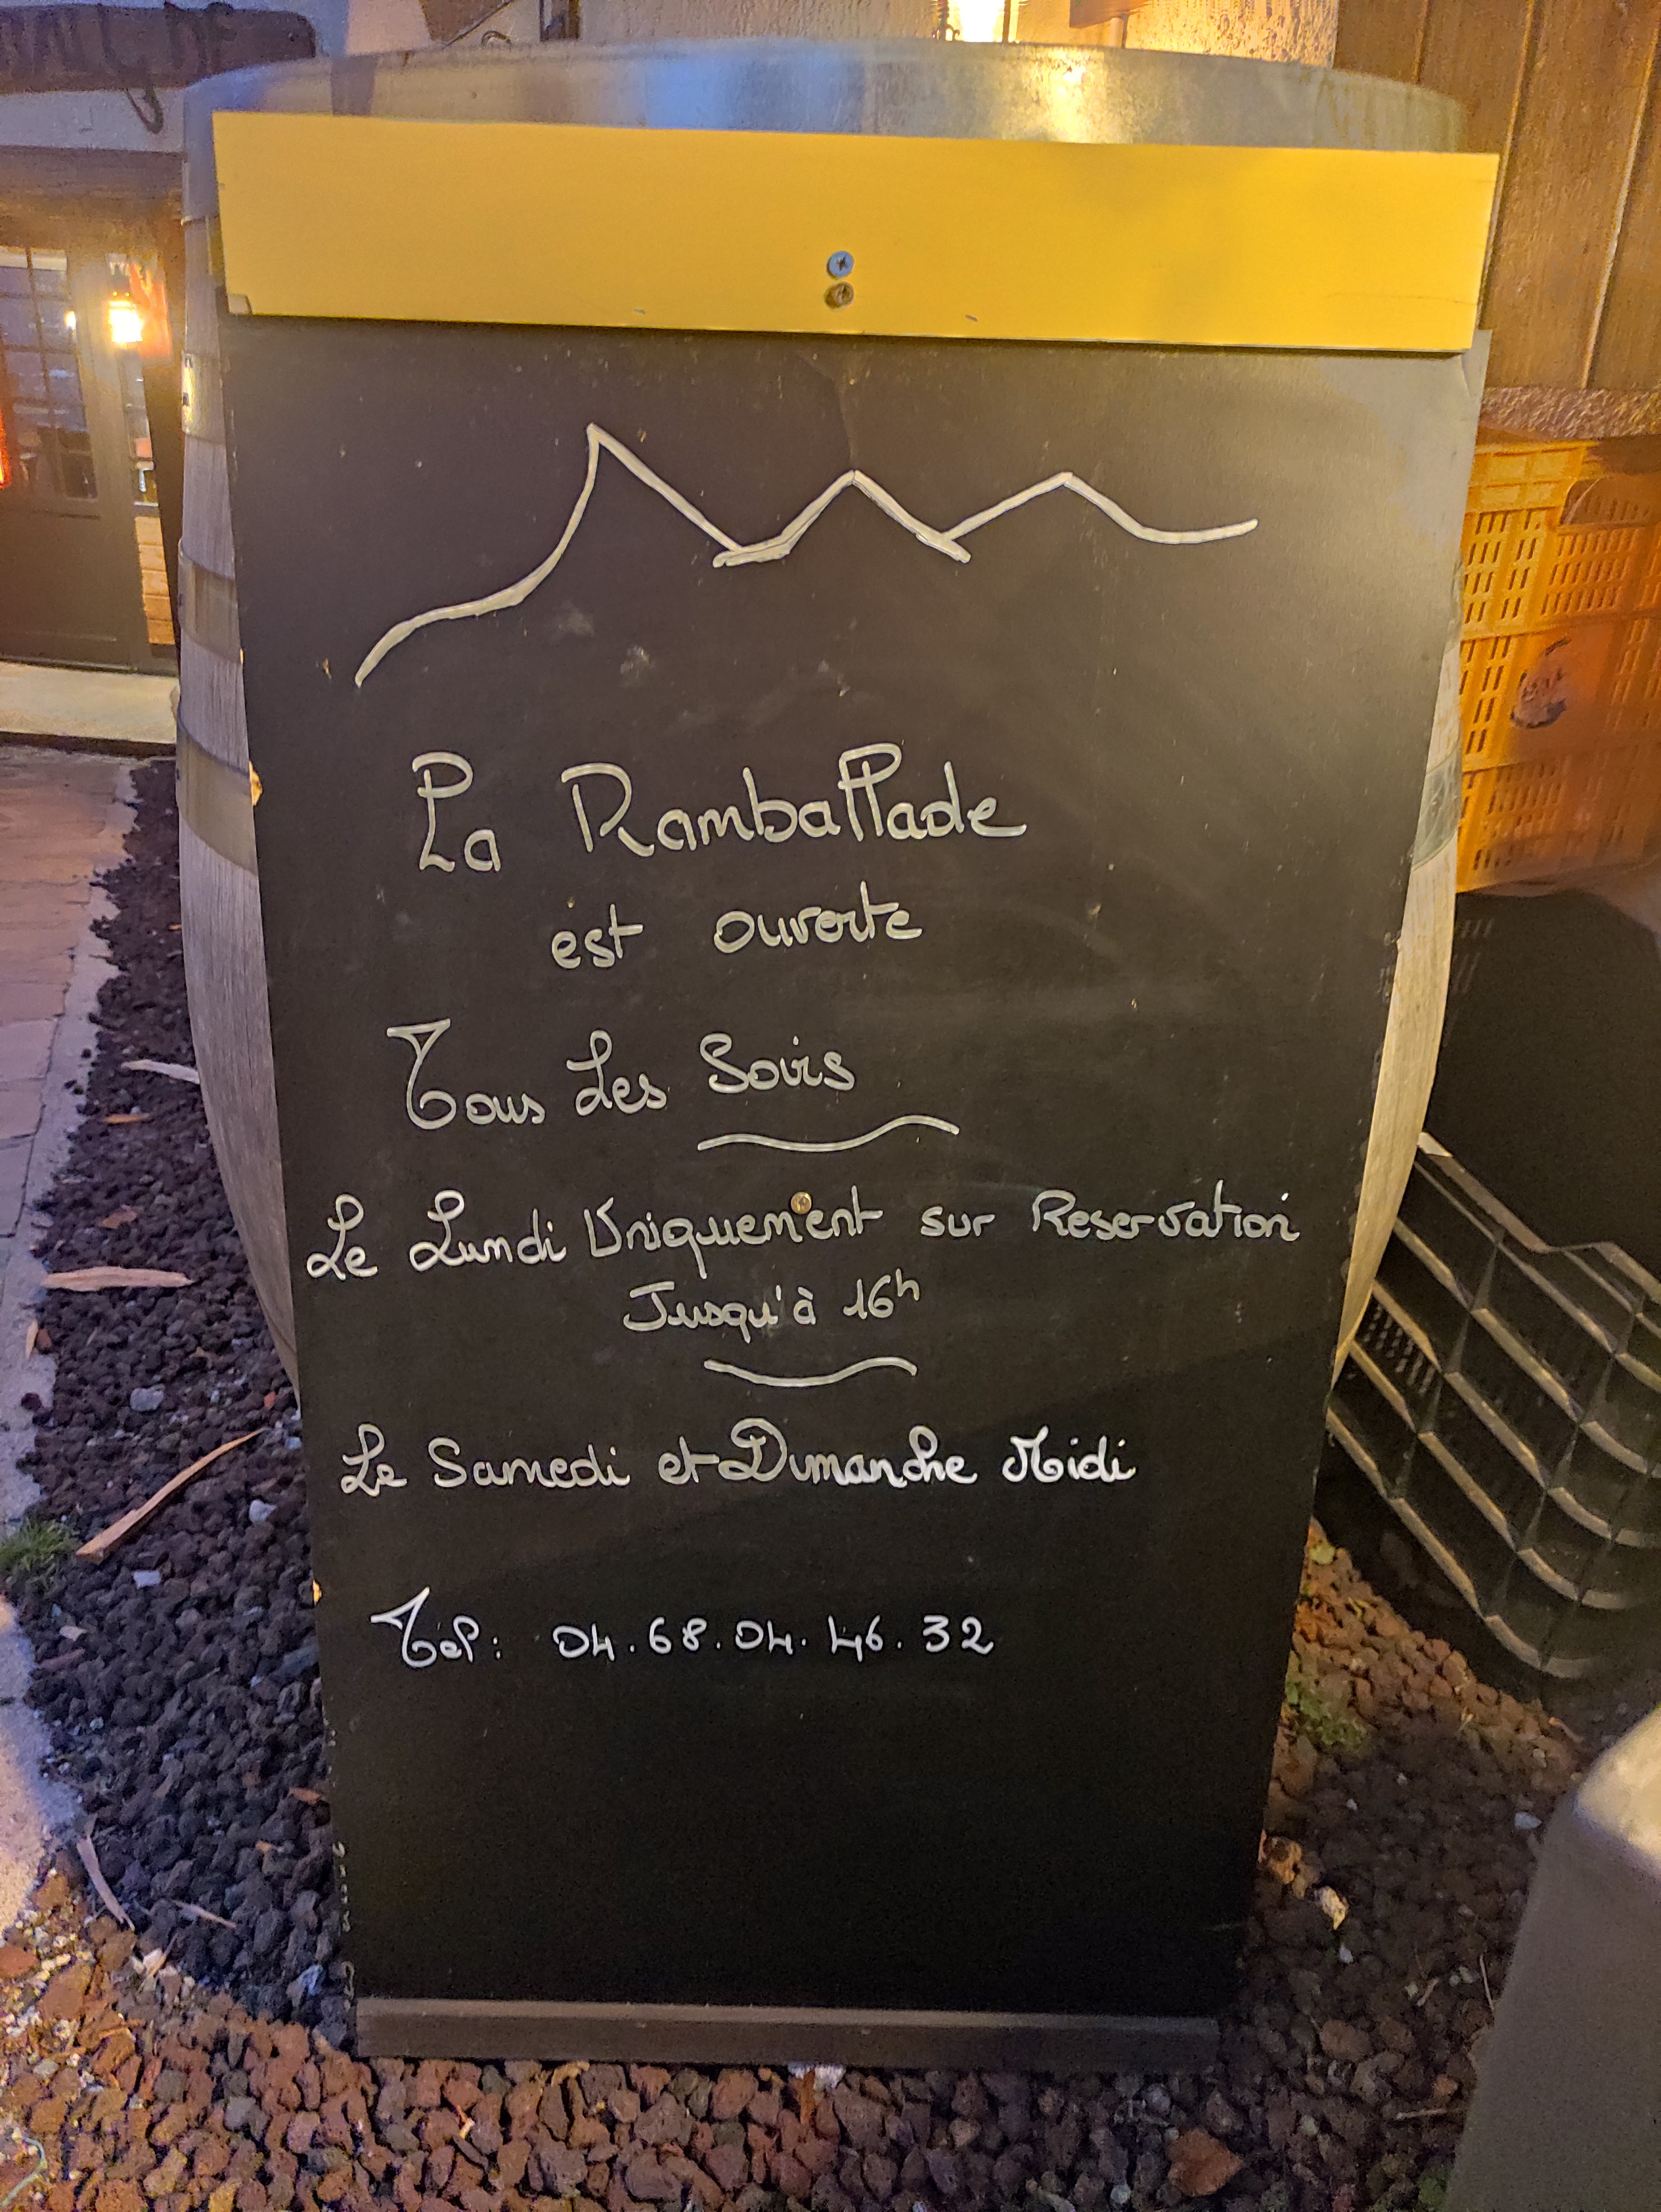 La Ramballade
est ouverte
Tous Les Soirs
Le Lundi Uniquement sur Reservation
Jusqu'à 16h
Le Samedi et Dimanche Midi
Tél : 04.68.04.46.32